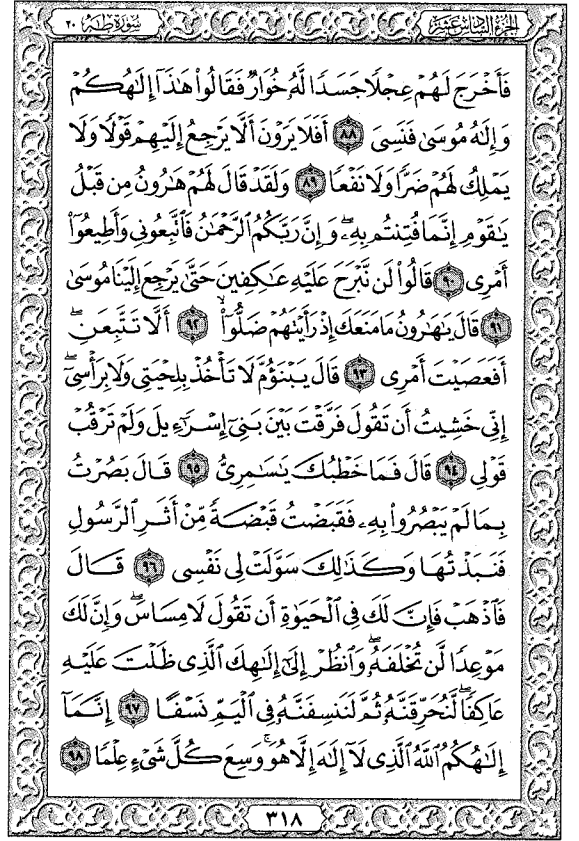 الجزء السادس عشر سورة طه ٢٠
فَأَخْرَجَ لَهُمْ عِجْلًا جَسَدًا لَّهُۥ خُوَارٌ فَقَالُوا۟ هَٰذَآ إِلَٰهُكُمْ
وَإِلَٰهُ مُوسَىٰ فَنَسِىَ ٨٨ أَفَلَا يَرَوْنَ أَلَّا يَرْجِعُ إِلَيْهِمْ قَوْلًا وَلَا
يَمْلِكُ لَهُمْ ضَرًّا وَلَا نَفْعًا ٨٩ وَلَقَدْ قَالَ لَهُمْ هَٰرُونُ مِن قَبْلُ
يَٰقَوْمِ إِنَّمَا فُتِنتُم بِهِۦ ۖ وَإِنَّ رَبَّكُمُ ٱلرَّحْمَٰنُ فَٱتَّبِعُونِى وَأَطِيعُوٓا۟
أَمْرِى ٩٠ قَالُوا۟ لَن نَّبْرَحَ عَلَيْهِ عَٰكِفِينَ حَتَّىٰ يَرْجِعَ إِلَيْنَا مُوسَىٰ
٩١ قَالَ يَٰهَٰرُونُ مَا مَنَعَكَ إِذْ رَأَيْتَهُمْ ضَلُّوٓا۟ ٩٢ أَلَّا تَتَّبِعَنِ ۖ
أَفَعَصَيْتَ أَمْرِى ٩٣ قَالَ يَبْنَؤُمَّ لَا تَأْخُذْ بِلِحْيَتِى وَلَا بِرَأْسِىٓ ۖ
إِنِّى خَشِيتُ أَن تَقُولَ فَرَّقْتَ بَيْنَ بَنِىٓ إِسْرَٰٓءِيلَ وَلَمْ تَرْقُبْ
قَوْلِى ٩٤ قَالَ فَمَا خَطْبُكَ يَٰسَٰمِرِىُّ ٩٥ قَالَ بَصُرْتُ
بِمَا لَمْ يَبْصُرُوا۟ بِهِۦ فَقَبَضْتُ قَبْضَةً مِّنْ أَثَرِ ٱلرَّسُولِ
فَنَبَذْتُهَا وَكَذَٰلِكَ سَوَّلَتْ لِى نَفْسِى ٩٦ قَالَ
فَٱذْهَبْ فَإِنَّ لَكَ فِى ٱلْحَيَوٰةِ أَن تَقُولَ لَا مِسَاسَ ۖ وَإِنَّ لَكَ
مَوْعِدًا لَّن تُخْلَفَهُۥ ۖ وَٱنظُرْ إِلَىٰٓ إِلَٰهِكَ ٱلَّذِى ظَلْتَ عَلَيْهِ
عَاكِفًا ۖ لَّنُحَرِّقَنَّهُۥ ثُمَّ لَنَنسِفَنَّهُۥ فِى ٱلْيَمِّ نَسْفًا ٩٧ إِنَّمَآ
إِلَٰهُكُمُ ٱللَّهُ ٱلَّذِى لَآ إِلَٰهَ إِلَّا هُوَ ۚ وَسِعَ كُلَّ شَىْءٍ عِلْمًا ٩٨
٣١٨